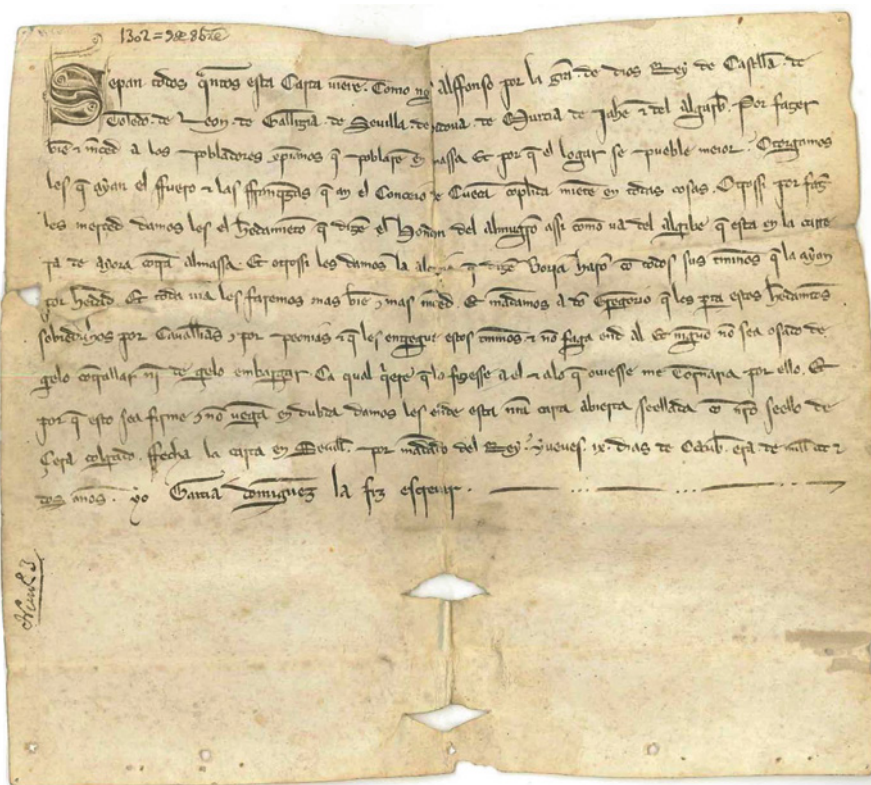 1302=9 de 8bre
Sepan todos q̃ntos esta Carta vierẽ. Como nos Alffonso por la gr̃a de dios Rey de Castella. de
Toledo. de Leon. de Gallizia. de Seuilla. de cordoua. de Murcia de Jahẽ ⁊ del algarb̃. Por fazer
biẽ ⁊ m̃ced a los pobladores xp̃ianos q̃ poblarẽ en massa. Et por q̃ el logar se pueble meior. Otorgamos
les q̃ ayan el fuero ⁊ las ffranq̃zas q̃ an el Concejo de Cuẽca cõplida miẽte en todas cosas. Otrossi por faz̃
les merced damos les el h̃edamiẽto q̃ dizẽ el del almugrõ assi como ua del algibe q̃ esta en la carre
ra de ayora almassa. Et otrossi les damos la q̃ dizẽ cõ todos sus t̃minos q̃ la ayan
por h̃edad. Et toda uia les faremos mas biẽ ⁊ mas m̃ced. Et mãdamos a dõ Gregorio q̃ les p̃ta estos h̃edamiẽtos
sobredichos por Cauall̃ias ⁊ por peonias ⁊ q̃ les entregue estos t̃minos ⁊ nõ faga end al Et ninguno nõ sea osado de
gelo cõtrallar ni de gelo embargar. Ca qual q̃ere q̃ lo fiziesse a el ⁊ a lo q̃ ouiesse me tornaria por ello. Et
por q̃ esto sea firme ⁊ nõ uenga en dubda damos les ende esta nr̃a carta abierta seellada cõ nr̃o seello de
Çera colgado. ffecha la carta en Seuill̃. por mãdado del Rey. yueues. ix. dias de Otub̃. era de mill ccc ⁊
dos anos. yo Garcia domiguez la fiz escreuir.